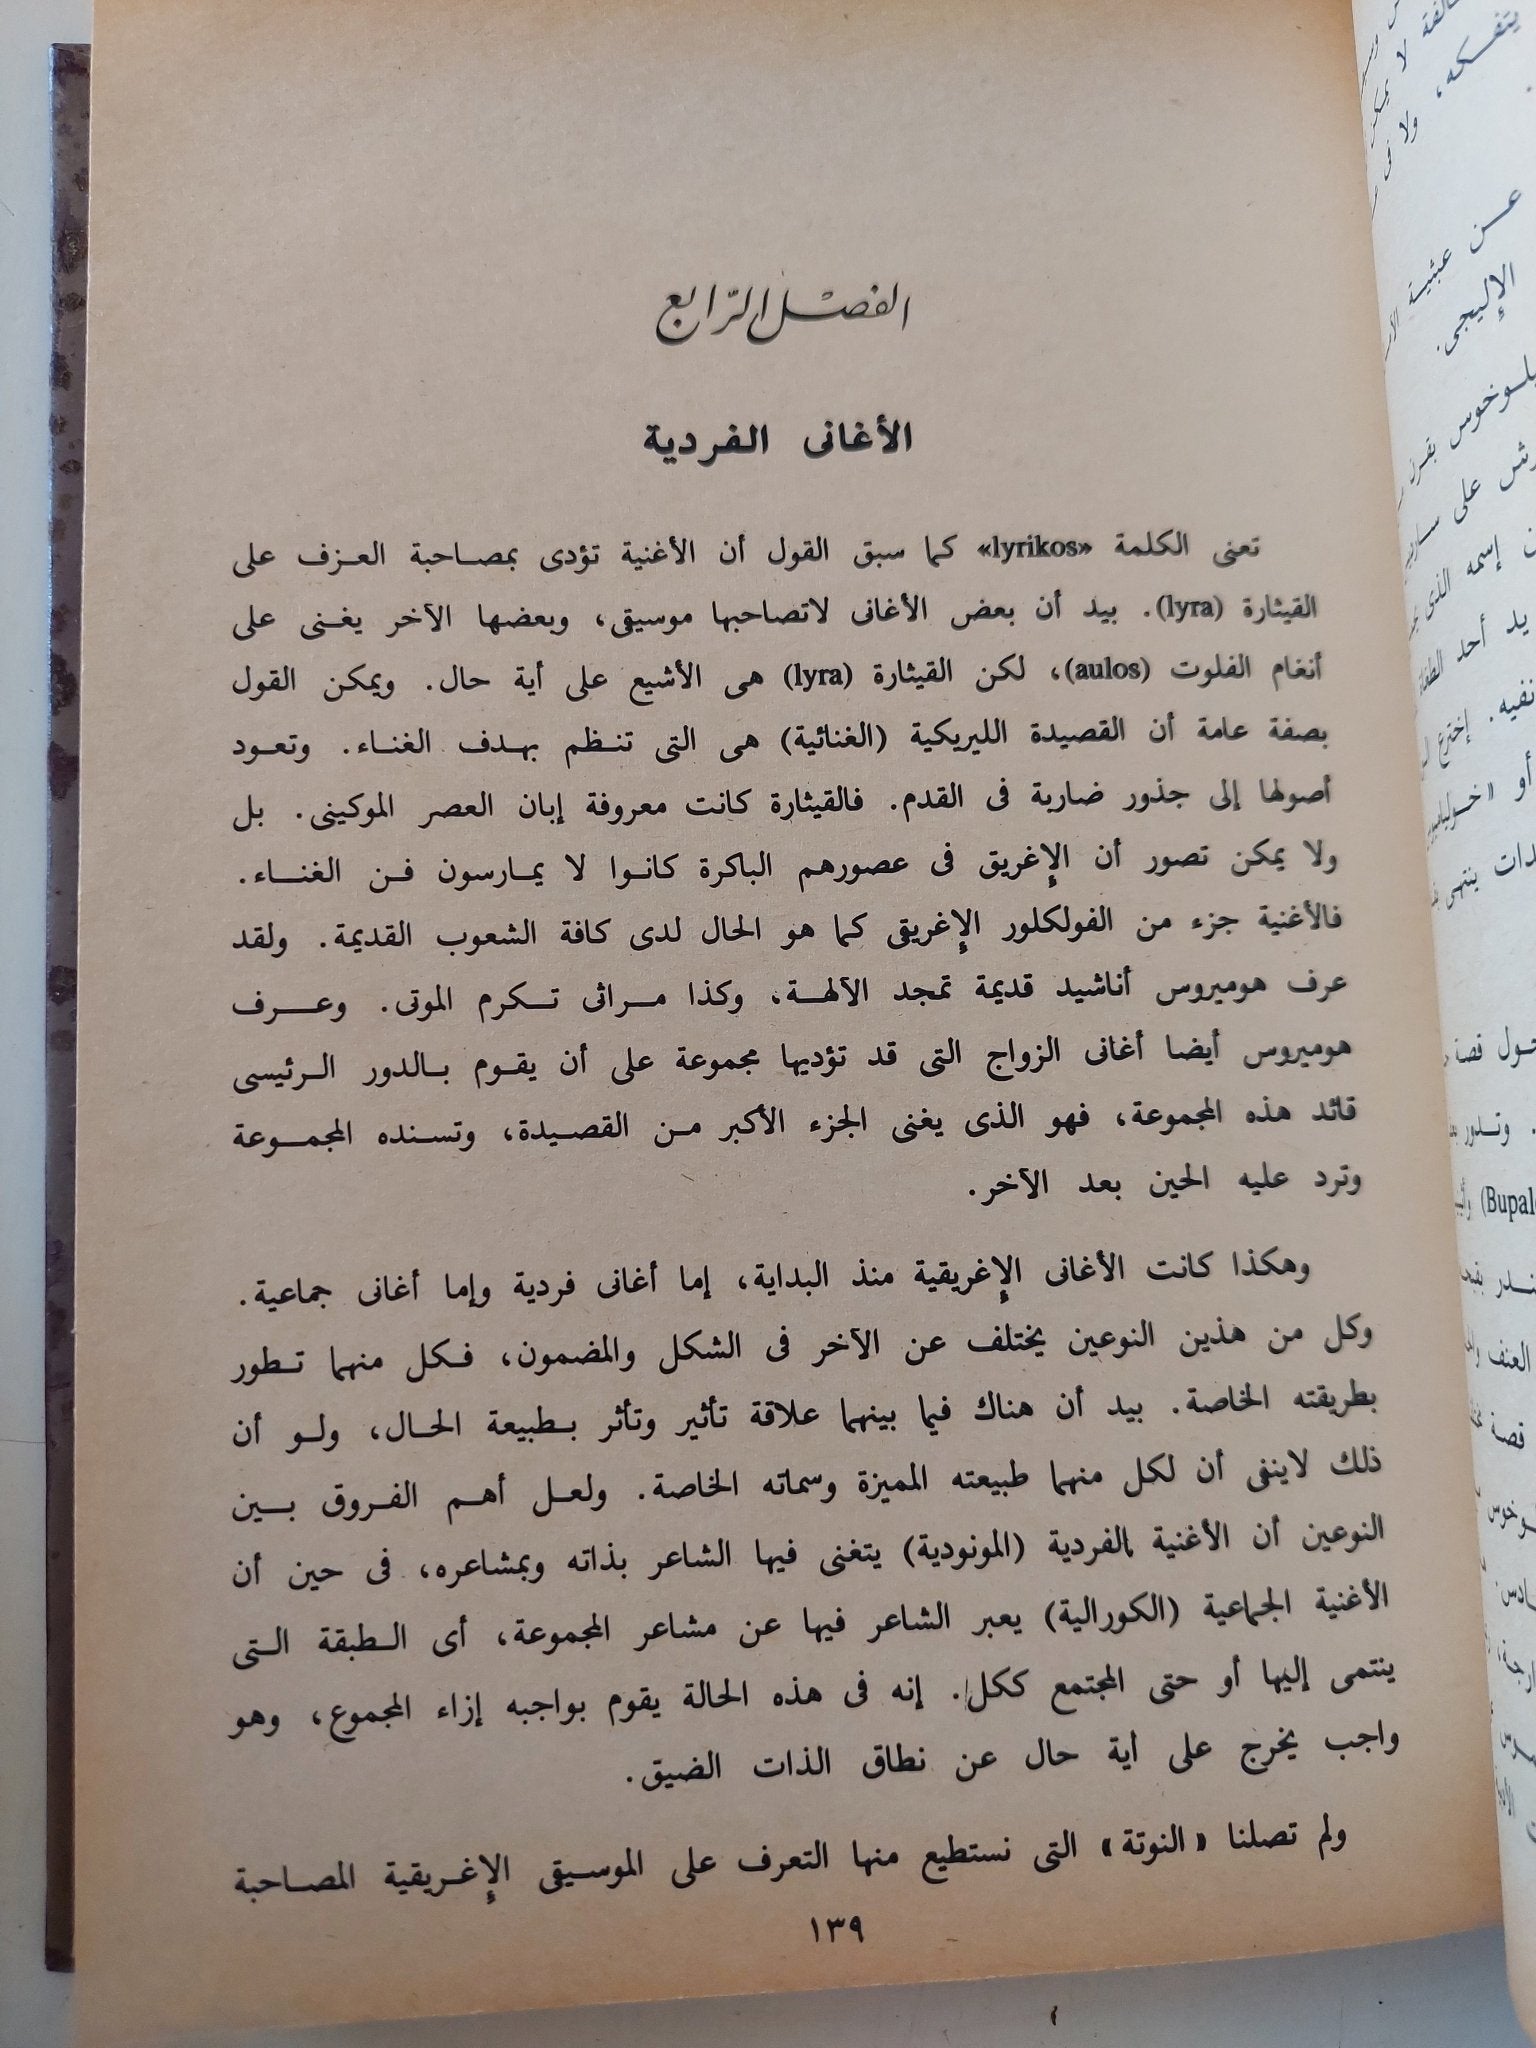 الفصل الرابع
الأغانى الفردية
تعنى الكلمة «lyrikos» كما سبق القول أن الأغنية تؤدى بمصاحبة العزف على
القيثارة (lyra). بيد أن بعض الأغانى لاتصاحبها موسيقى، وبعضها الآخر يغنى على
أنغام الفلوت (aulos)، لكن القيثارة (lyra) هى الأشيع على أية حال. ويمكن القول
بصفة عامة أن القصيدة الليريكية (الغنائية) هى التى تنظم بهدف الغناء. وتعود
أصولها إلى جذور ضاربة فى القدم. فالقيثارة كانت معروفة إبان العصر الموكينى. بل
ولا يمكن تصور أن الإغريق فى عصورهم الباكرة كانوا لا يمارسون فن الغناء.
فالأغنية جزء من الفولكلور الإغريقى كما هو الحال لدى كافة الشعوب القديمة. ولقد
عرف هوميروس أناشيد قديمة تمجد الآلهة، وكذا مراثى تكرم الموتى. وعرف
هوميروس أيضا أغانى الزواج التى قد تؤديها مجموعة على أن يقوم بالدور الرئيسى
قائد هذه المجموعة، فهو الذى يغنى الجزء الأكبر من القصيدة، وتسنده المجموعة
وترد عليه الحين بعد الآخر.
وهكذا كانت الأغانى الإغريقية منذ البداية، إما أغانى فردية وإما أغانى جماعية.
وكل من هذين النوعين يختلف عن الآخر فى الشكل والمضمون، فكل منهما تطور
بطريقته الخاصة. بيد أن هناك فيما بينهما علاقة تأثير وتأثر بطبيعة الحال، ولو أن
ذلك لاينفى أن لكل منهما طبيعته المميزة وسماته الخاصة. ولعل أهم الفروق بين
النوعين أن الأغنية الفردية (المونودية) يتغنى فيها الشاعر بذاته وبمشاعره، فى حين أن
الأغنية الجماعية (الكورالية) يعبر الشاعر فيها عن مشاعر المجموعة، أى الطبقة التى
ينتمى إليها أو حتى المجتمع ككل. إنه فى هذه الحالة يقوم بواجبه إزاء المجموع، وهو
واجب يخرج على أية حال عن نطاق الذات الضيق.
ولم تصلنا «النوتة» التى نستطيع منها التعرف على الموسيقى الإغريقية المصاحبة
١٣٩